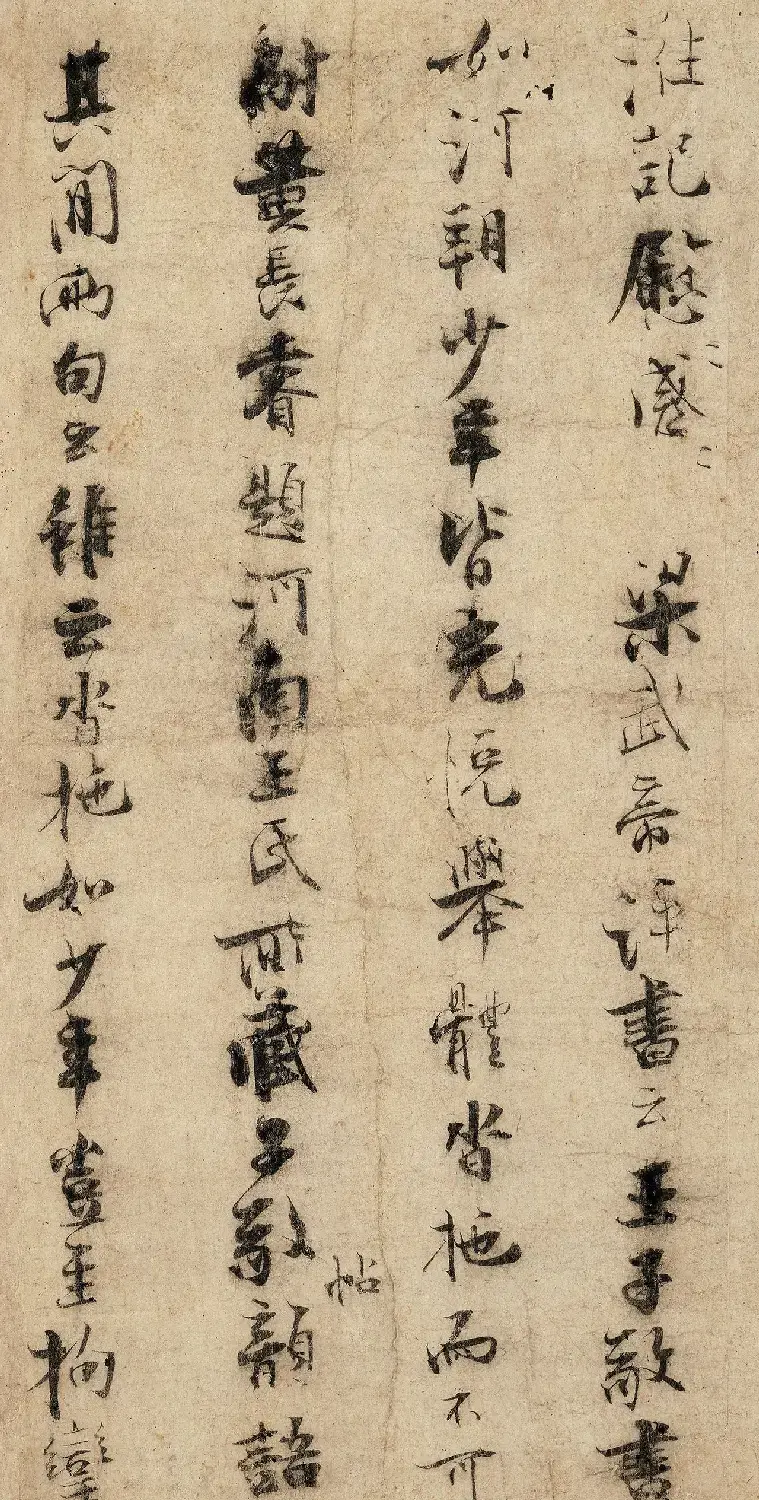 淮記慰感〻 梁武帝評書云王子敬書
如河朔少年皆充悅舉體沓拖而不可
耐黃長睿題河南王氏所藏子敬韻語
帖
其間兩句云雖云沓拖如少年豈至拘攣